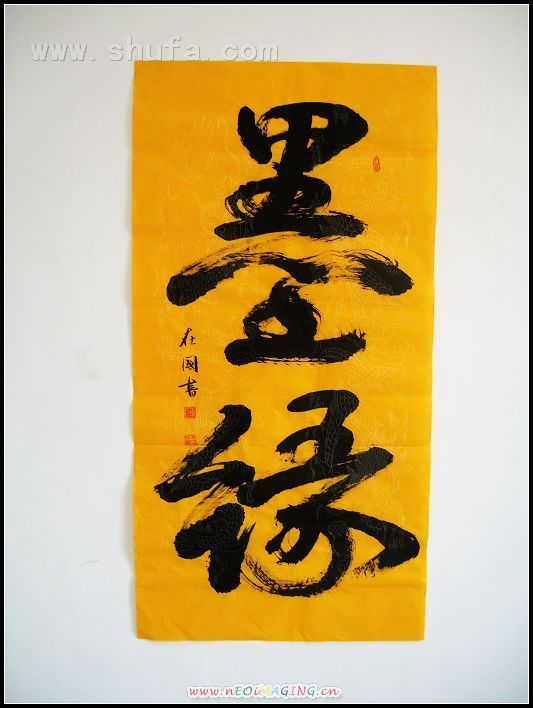 www.shufa.com
墨
缘
在國書
www.nEOiMAGiNG.cn